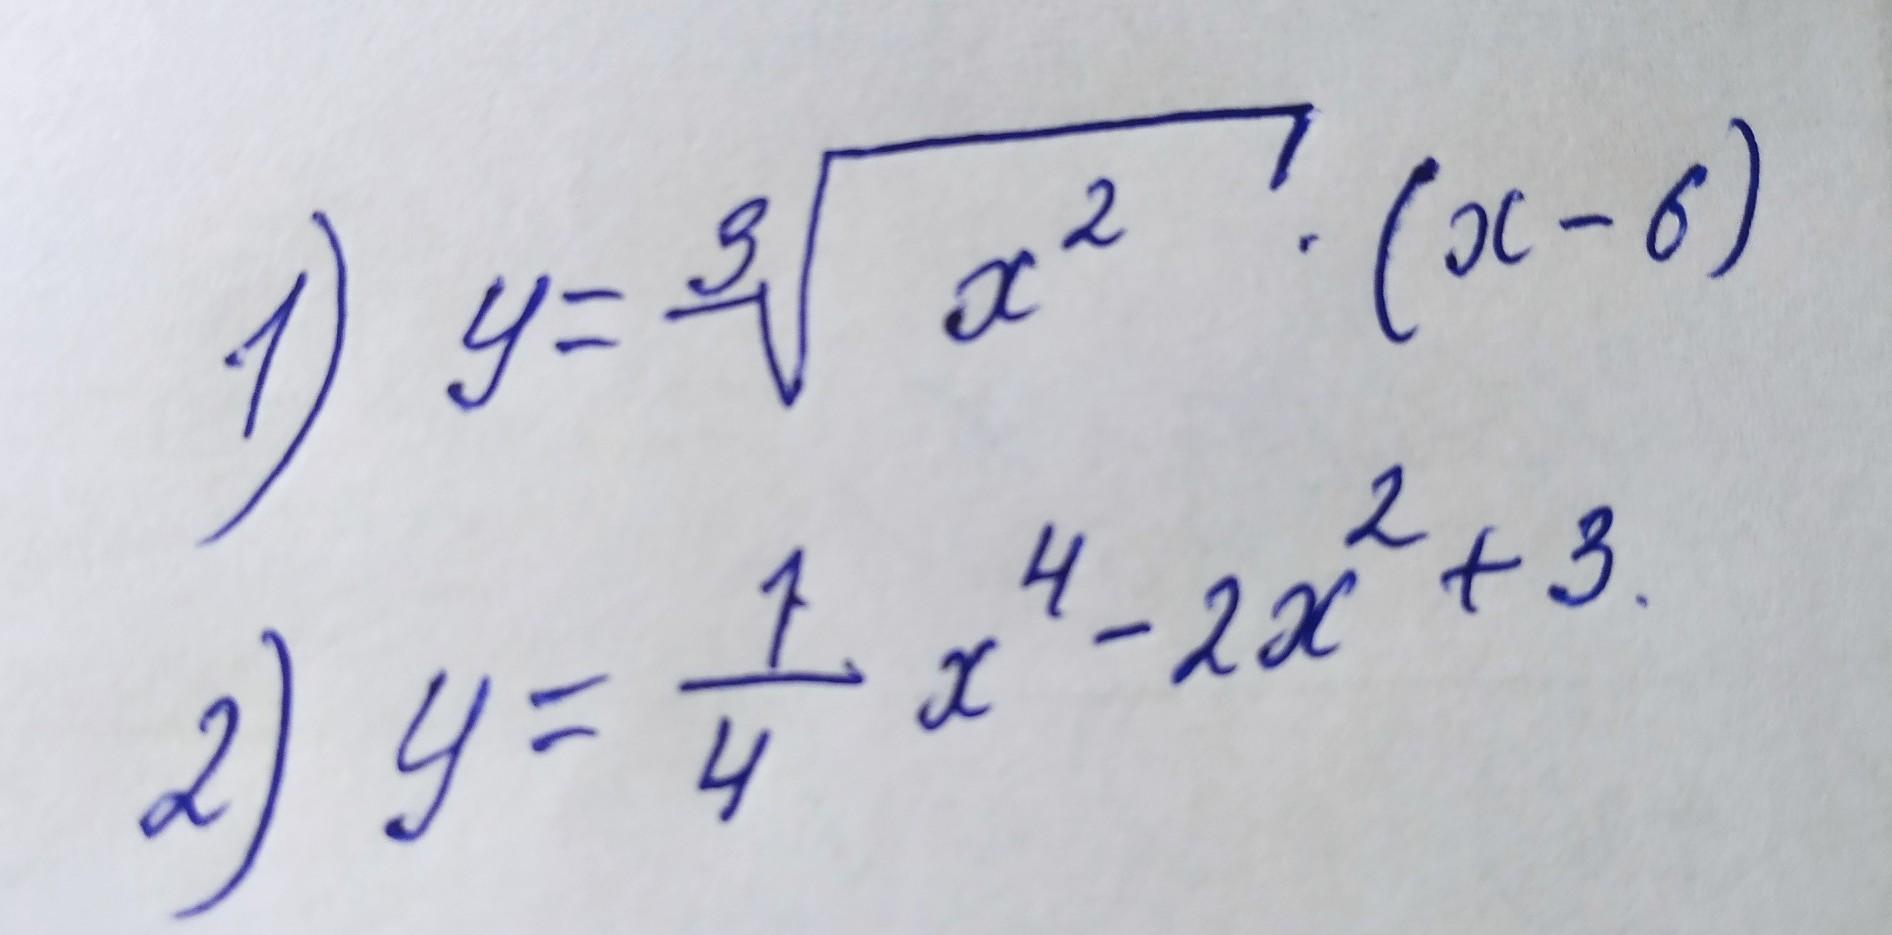 1) y = ∛(x²) · (x - 6)
2) y = 1/4 x⁴ - 2x² + 3.